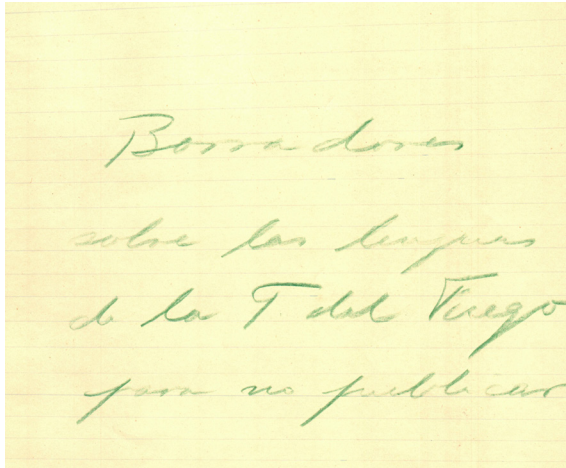 Borradores
sobre las lenguas
de la T. del Fuego
para no publicar